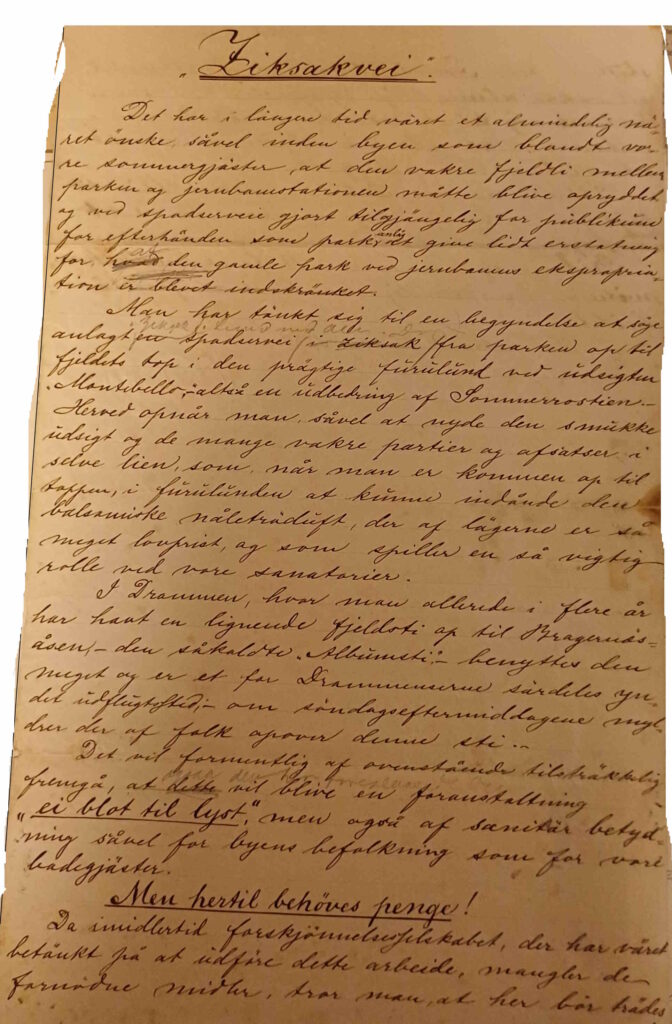 „Ziksakvei".
Det har i längere tid väret et almindelig nä-
ret önske, såvel inden byen som blandt vor
re sommergjäster, at den vakre fjeldli mellem
parken og jernbanestationen måtte blive opryddet
og ved spadserveie gjort tilgjängelig for publikum
for efterhånden som parkanlig at give lidt erstatning
for, hvad den gamle park ved jernbanens ekspropria-
tion er blevet indskränket.
Man har tänkt sig til en begyndelse at söge
anlagt en spadservei i ziksak fra parken op til
fjeldets top i den prägtige furulund ved udsigten
„Montebello",- altså en udbedring af Sommerrostien.-
Herved opnår man, såvel at nyde den smukke
udsigt og de mange vakre partier og afsatser i
selve lien, som, når man er kommen op til
toppen, i furulunden at kunne indånde den
balsamiske nåleträduft, der af lägerne er så
meget lovprist, og som spiller en så vigtig
rolle ved vore sanatorier.
I Drammen, hvor man allerede i flere år
har havt en lignende fjeldsti op til Bragernäs-
åsen,- den såkaldte „Albumsti",- benyttes den
meget og er et for Drammenserne särdeles yn-
det udflugtssted,- om söndagseftermiddagene myl-
drer der af folk opover denne sti.-
Det vil formentlig af ovenstående tilsträkkelig
fremgå, at dette vil blive en foranstaltning
„ei blot til lyst", men også af sanitär betyd-
ning såvel for byens befolkning som for vore
badegjäster.
Men hertil behöves penge!
Da imidlertid forskjönnelsesselskabet, der har väret
betänkt på at udföre dette arbeide, mangler de
fornödne midler, tror man, at her bör trädes